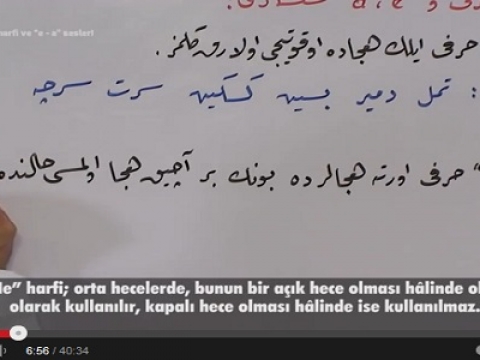 harfi ve "e - a" sesleri
حرفی ایلك هجاده اوقوتیجی اولارق كلمز.
: تمل دمیر بسین كسكین سرت سرچه
" حرفی اورته هجالرده بونك بر آچیق هجا اولمسی حالنده
He" harfi; orta hecelerde, bunun bir açık hece olması hâlinde
olarak kullanılır, kapalı hece olması hâlinde ise kullanılmaz.
6:56 / 40:34